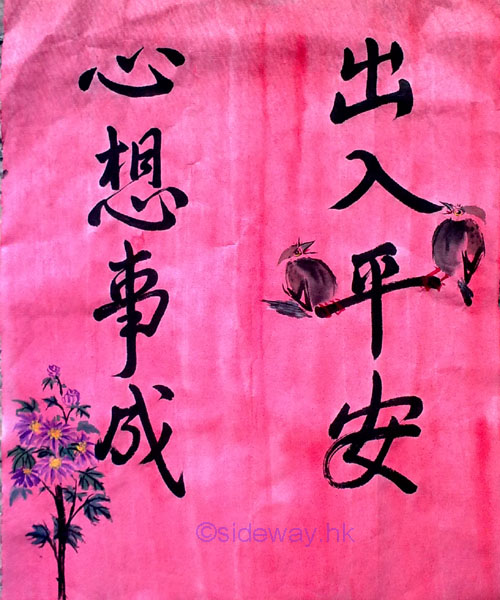 出入平安
心想事成
©sideway.hk